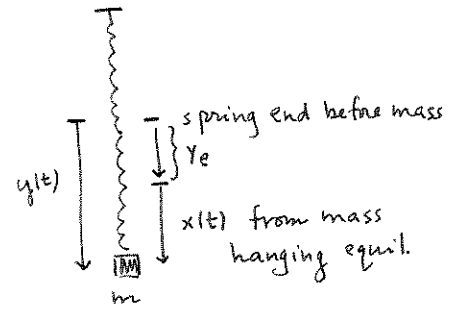 spring end before mass
Ye
y(t)
x(t) from mass
hanging equil.
m